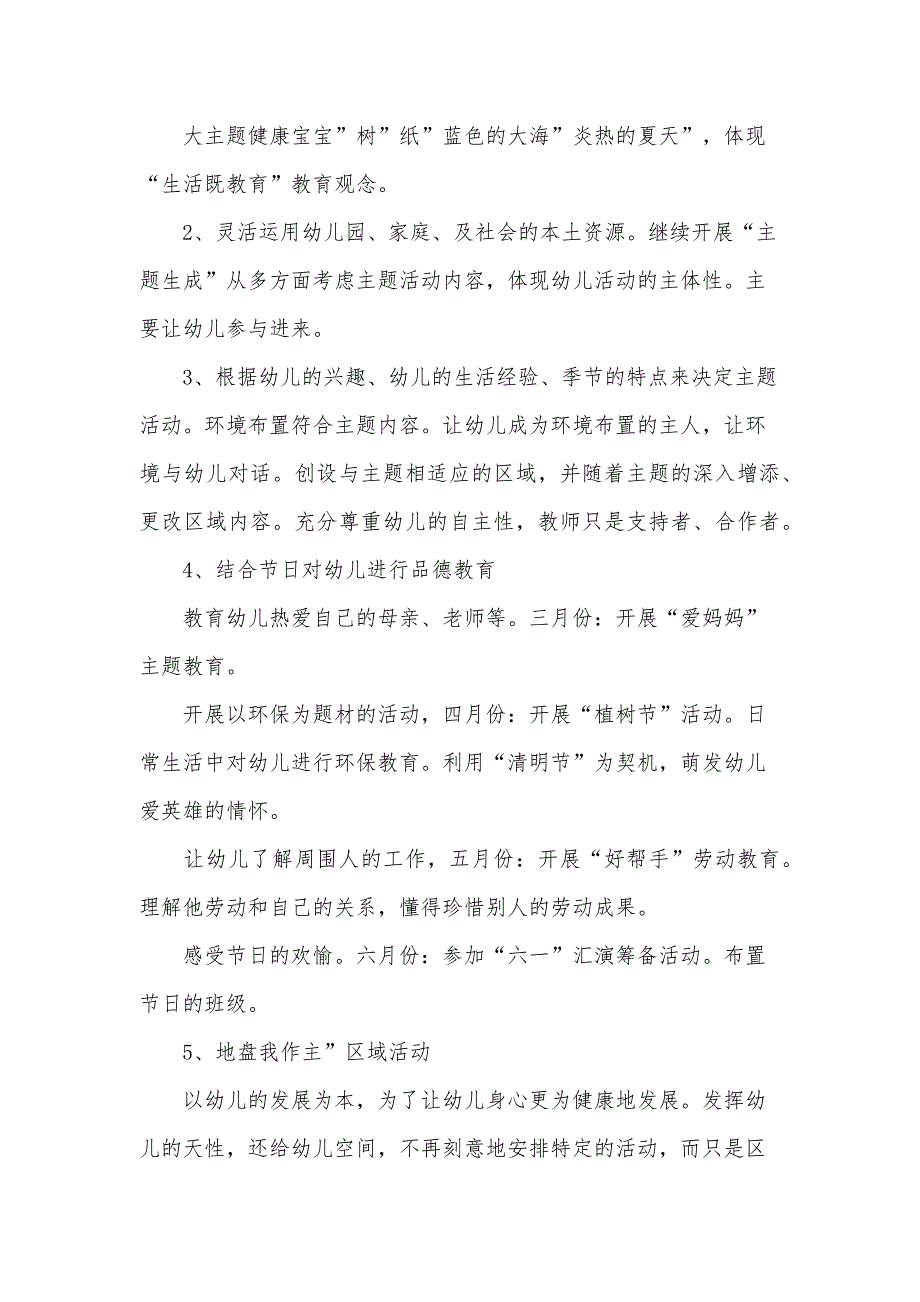 大主题健康宝宝”树”纸”蓝色的大海”炎热的夏天”，体现
“生活既教育”教育观念。
2、灵活运用幼儿园、家庭、及社会的本土资源。继续开展“主
题生成”从多方面考虑主题活动内容，体现幼儿活动的主体性。主
要让幼儿参与进来。
3、根据幼儿的兴趣、幼儿的生活经验、季节的特点来决定主题
活动。环境布置符合主题内容。让幼儿成为环境布置的主人，让环
境与幼儿对话。创设与主题相适应的区域，并随着主题的深入增添、
更改区域内容。充分尊重幼儿的自主性，教师只是支持者、合作者。
4、结合节日对幼儿进行品德教育
教育幼儿热爱自己的母亲、老师等。三月份：开展“爱妈妈”
主题教育。
开展以环保为题材的活动，四月份：开展“植树节”活动。日
常生活中对幼儿进行环保教育。利用“清明节”为契机，萌发幼儿
爱英雄的情怀。
让幼儿了解周围人的工作，五月份：开展“好帮手”劳动教育。
理解他劳动和自己的关系，懂得珍惜别人的劳动成果。
感受节日的欢愉。六月份：参加“六一”汇演筹备活动。布置
节日的班级。
5、地盘我作主”区域活动
以幼儿的发展为本，为了让幼儿身心更为健康地发展。发挥幼
儿的天性，还给幼儿空间，不再刻意地安排特定的活动，而只是区